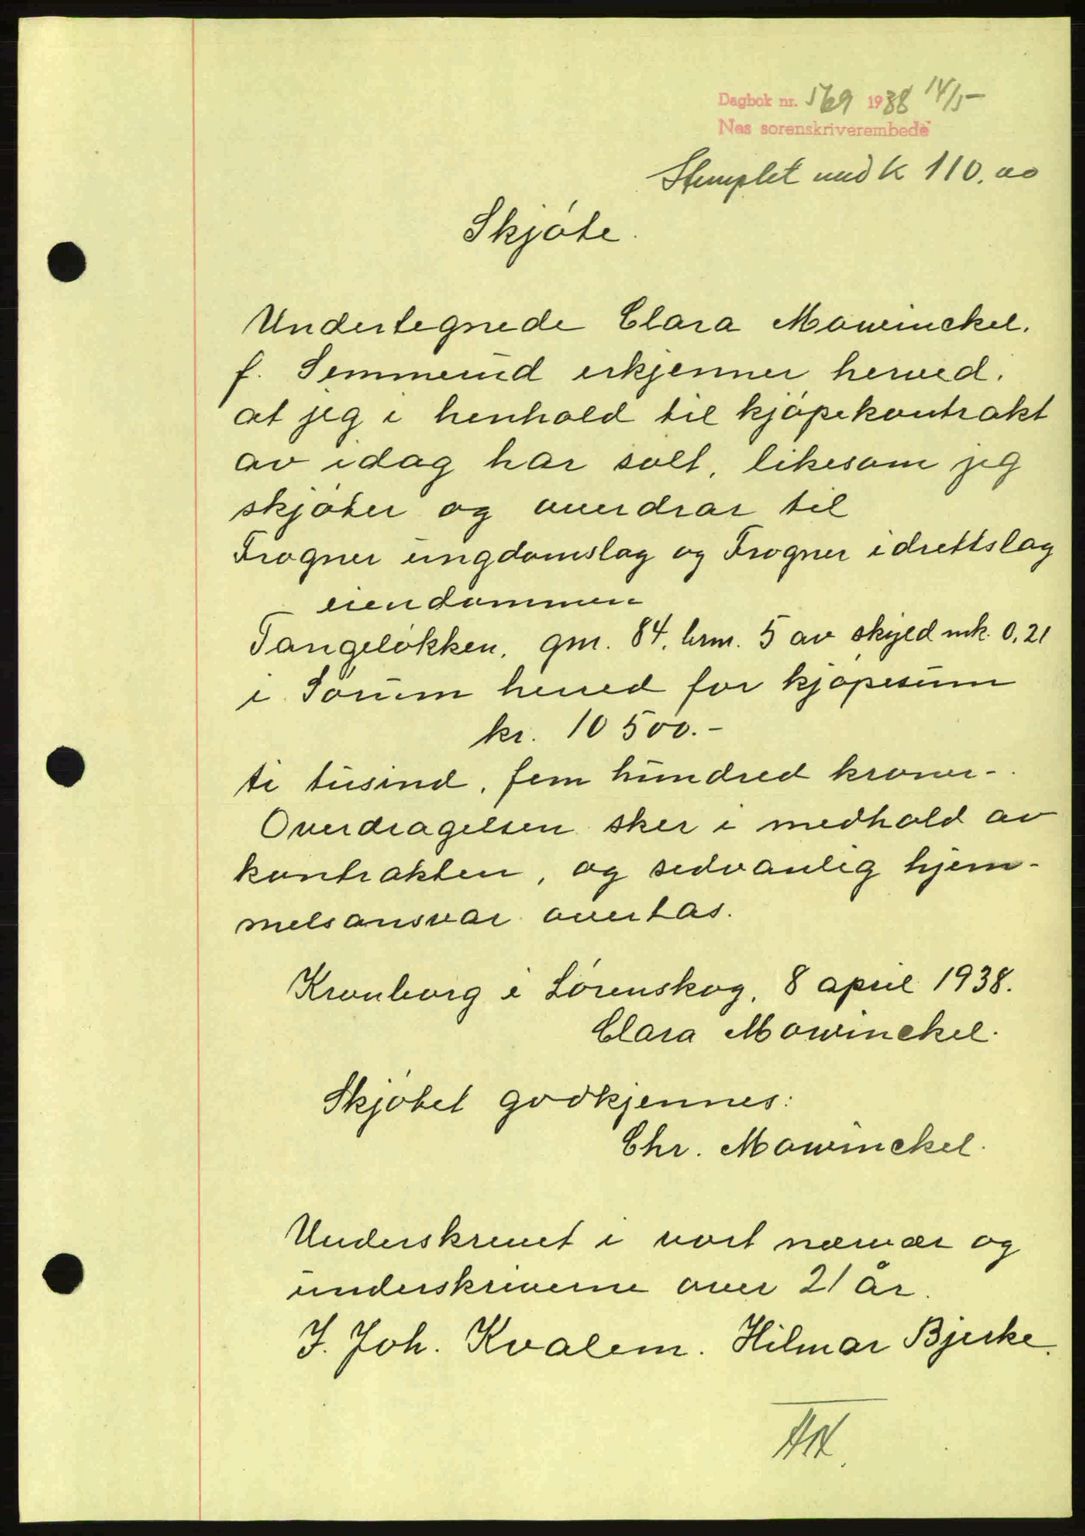 Dagbok nr. 569 1938 14/5-
Nes sorenskriverembede
Stemplet med k 110.00
Skjøte.
Undertegnede Clara Mowinckel.
f. Semmerud erkjenner herved,
at jeg i henhold til kjøpekontrakt
av idag har solt, likesom jeg
skjøter og overdrar til
Frogner ungdomslag og Frogner idrettslag
eiendommen
Tangeløkken, gnr. 84, brn. 5 av skyld mk. 0,21
i Sørum herred for kjøpesum
kr. 10500.-
ti tusind, fem hundred kroner-.
Overdragelsen sker i medhold av
kontrakten, og sedvanlig hjem-
melsansvar overtas.
Kronborg i Lørenskog, 8 april 1938.
Clara Mowinckel.
Skjøtet godkjennes:
Chr. Mowinckel.
Underskrevet i vort nærvær og
underskriverne over 21 år.
J. Joh. Kvalem. Hilmar Bjerke.